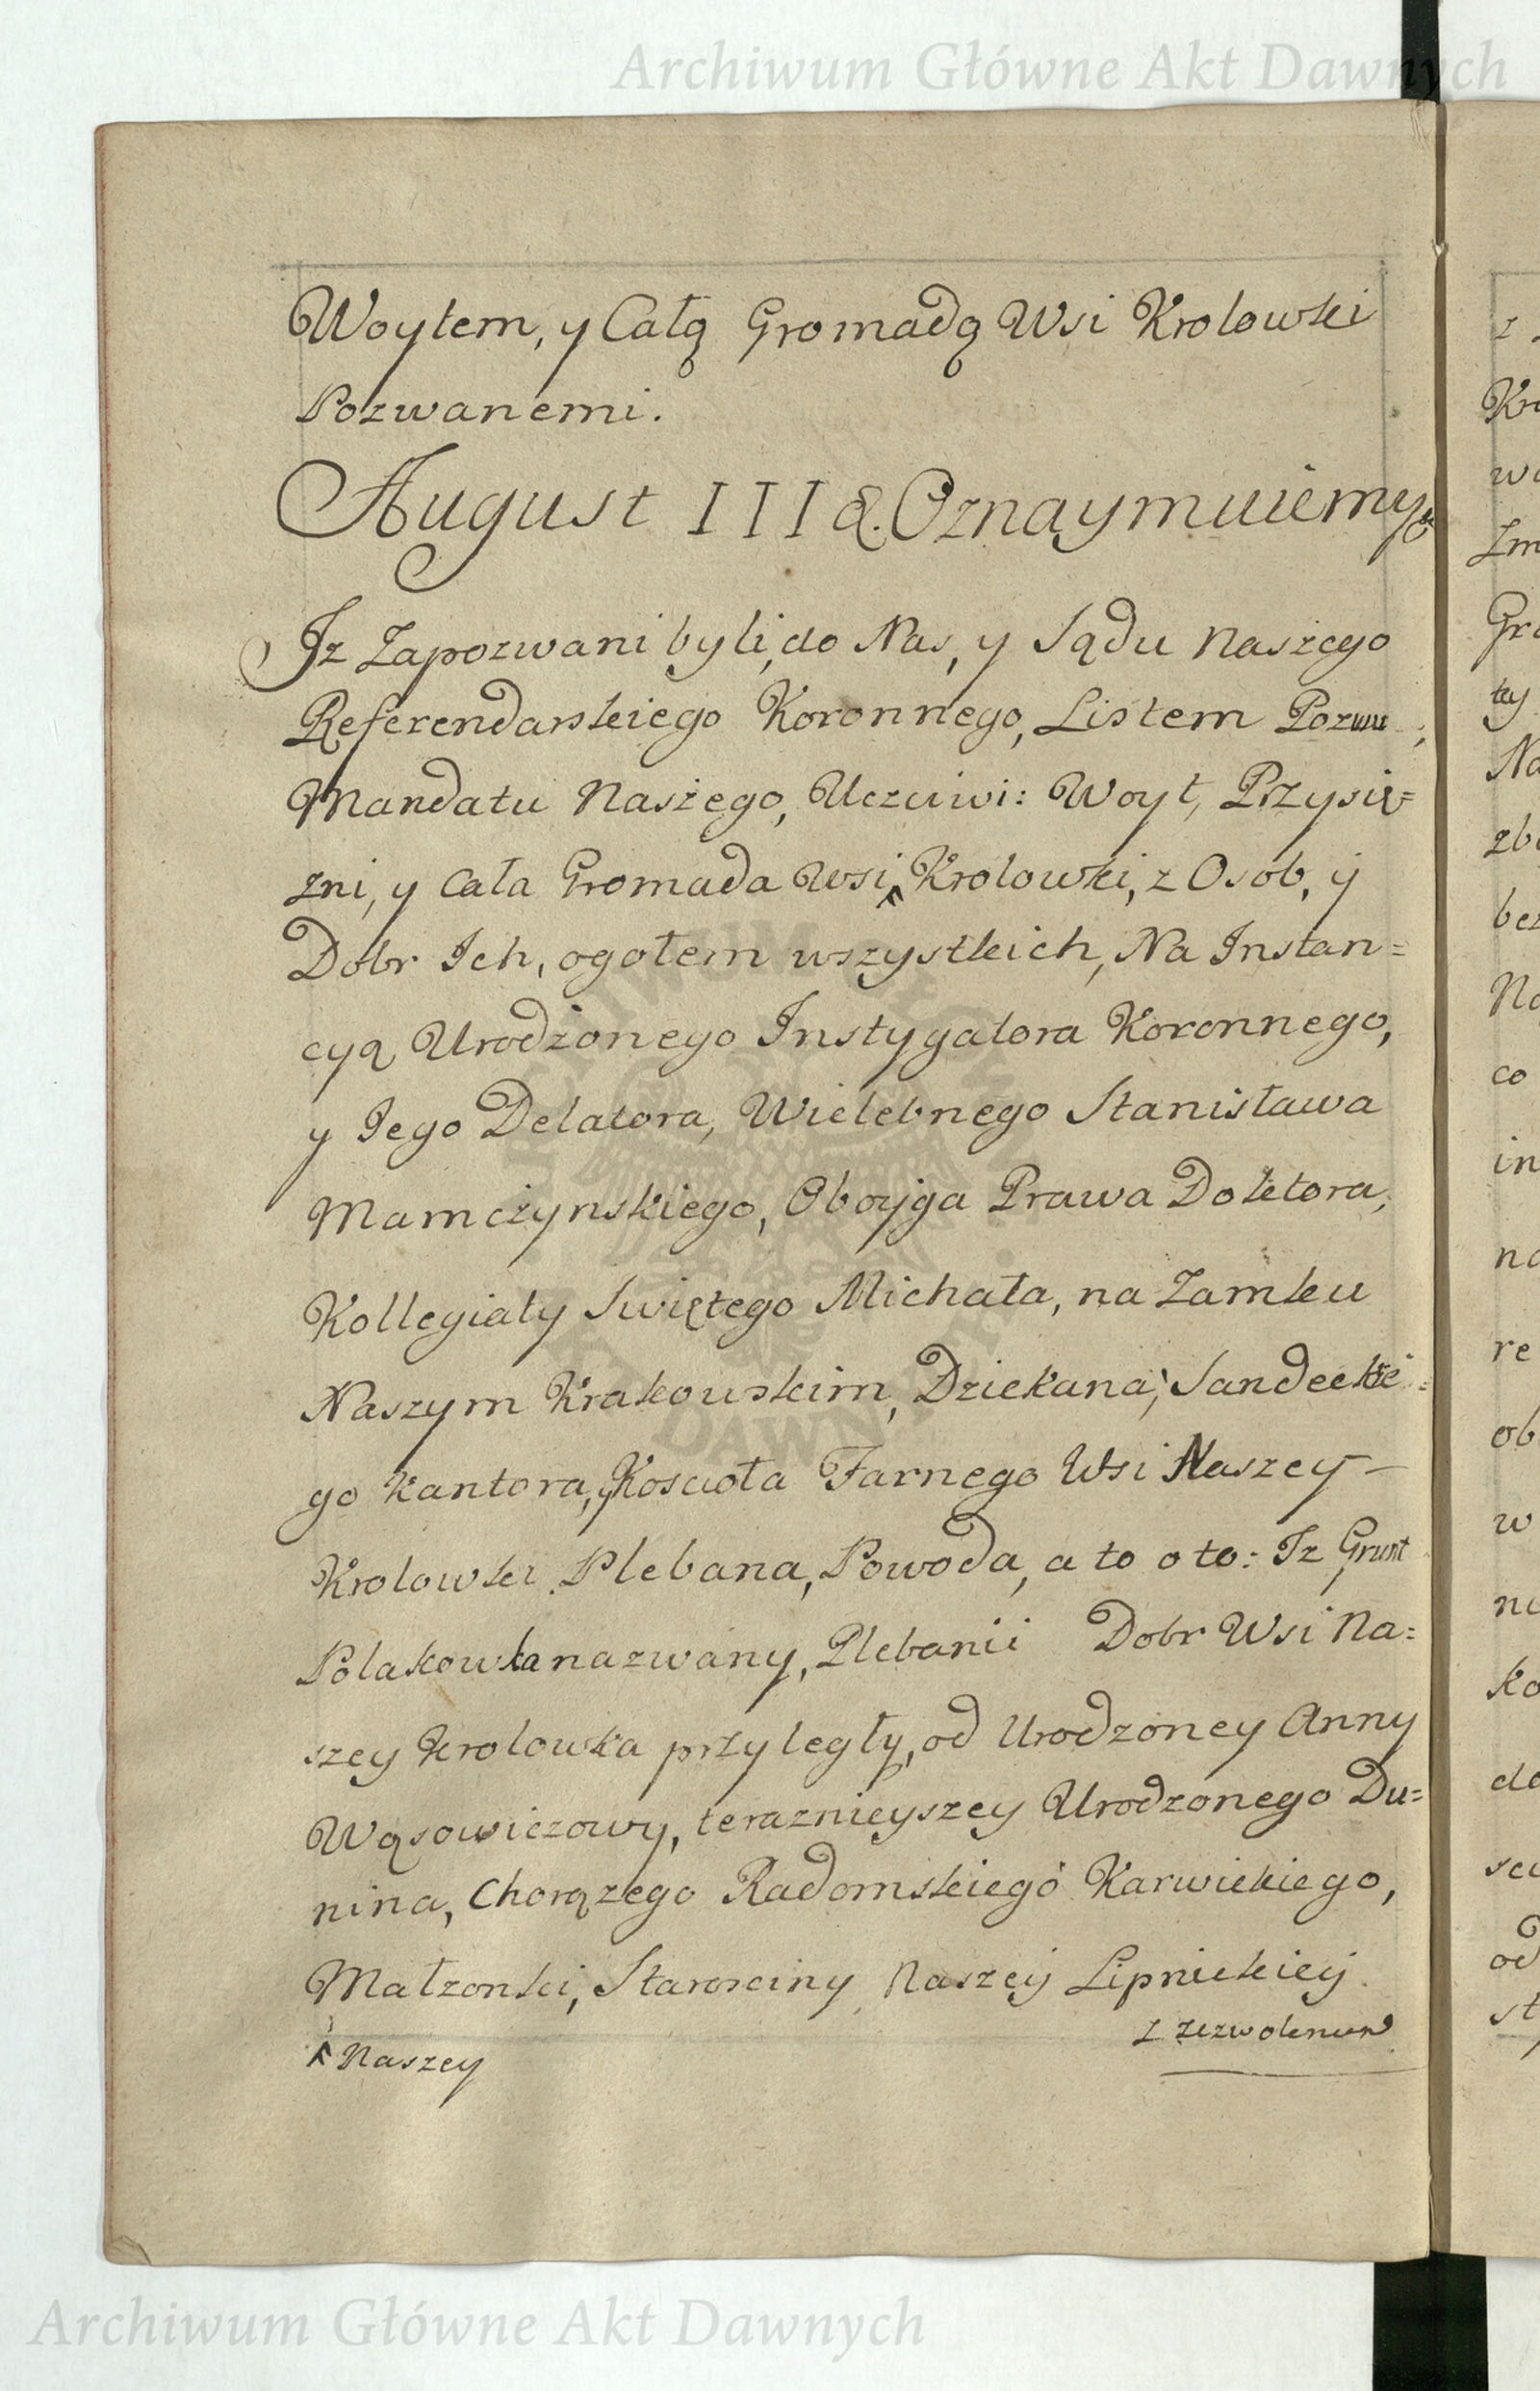 Archiwum Główne Akt Dawnych
Woytem, y Całą Gromadą Wsi Krolowki
Pozwanemi.
August III &. Oznaymuiemy &
Jz Zapozwani byli, do Nas, y Sądu Naszego
Referendarskiego Koronnego, Listem Pozwu,
Mandatu Naszego, Uczciwi: Woyt, Przysię=
zni, y Cała Gromada Wsi ^ Krolowki, z Osob, y
Dobr Jch, ogołem wszystkich, Na Jnstan=
cyą Urodzonego Jnstygatora Koronnego,
y Jego Delatora, Wielebnego Stanisława
Mamczynskiego, Oboyga Prawa Doktora,
Kollegiaty Swiętego Michała, na Zamku
Naszym Krakowskim, Dziekana, Sandeckie=
go Kantora, y Koscioła Farnego Wsi Naszey –
Krolowki Plebana, Powoda, a to o to: Jz Grunt
Polakowka nazwany, Plebanii Dobr Wsi Na=
szey Krolowka przyległy, od Urodzoney Anny
Wąsowiczowy, teraznieyszey Urodzonego Du=
nina, Chorązego Radomskiego Karwickiego,
Małzonki, Starosciny Naszey Lipnickiey
z zezwoleniem
^ Naszey
Kr
w
Zm
Gr
tey
Na
zb
bez
Na
co
in
na
re
ob
w
ko
de
od
st
Archiwum Główne Akt Dawnych